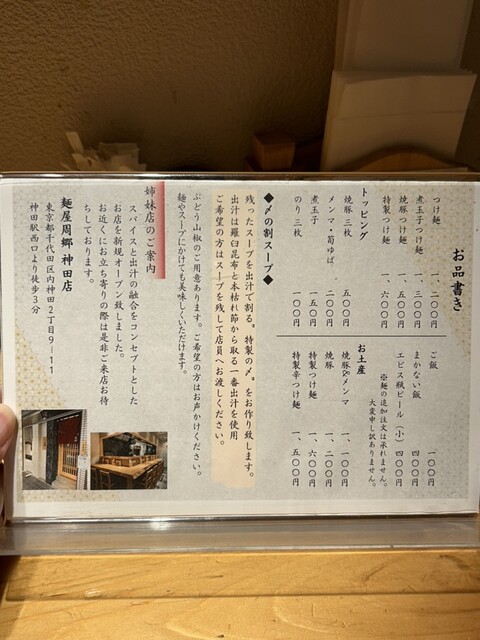 お品書き
つけ麺 一、二〇〇円
煮玉子つけ麺 一、三〇〇円
焼豚つけ麺 一、五〇〇円
特製つけ麺 一、六〇〇円
ご飯 一〇〇円
まかない飯 四〇〇円
エビス瓶ビール（小） 四〇〇円
※麺の追加注文は承れません。
大変申し訳ありません。
トッピング
焼豚三枚 五〇〇円
メンマ・筍ゆば 二〇〇円
煮玉子 一五〇円
のり三枚 一〇〇円
お土産
焼豚&メンマ 一、一〇〇円
焼豚 一、二〇〇円
特製つけ麺 一、六〇〇円
特製辛つけ麺 一、五〇〇円
◆〆の割スープ◆
残ったスープを出汁で割る。特製の〆。をお作り致します。
出汁は羅臼昆布と本枯れ節から取る一番出汁を使用
ご希望の方はスープを残して店員へお渡しください。
ぶどう山椒のご用意あります。ご希望の方はお声かけください。
麺やスープにかけても美味しくいただけます。
姉妹店のご案内
スパイスと出汁の融合をコンセプトとした
お店を新規オープン致しました。
お近くにお立ち寄りの際は是非ご来店お待
ちしております。
麺屋周郷 神田店
東京都千代田区内神田２丁目９－１１
神田駅西口より徒歩３分